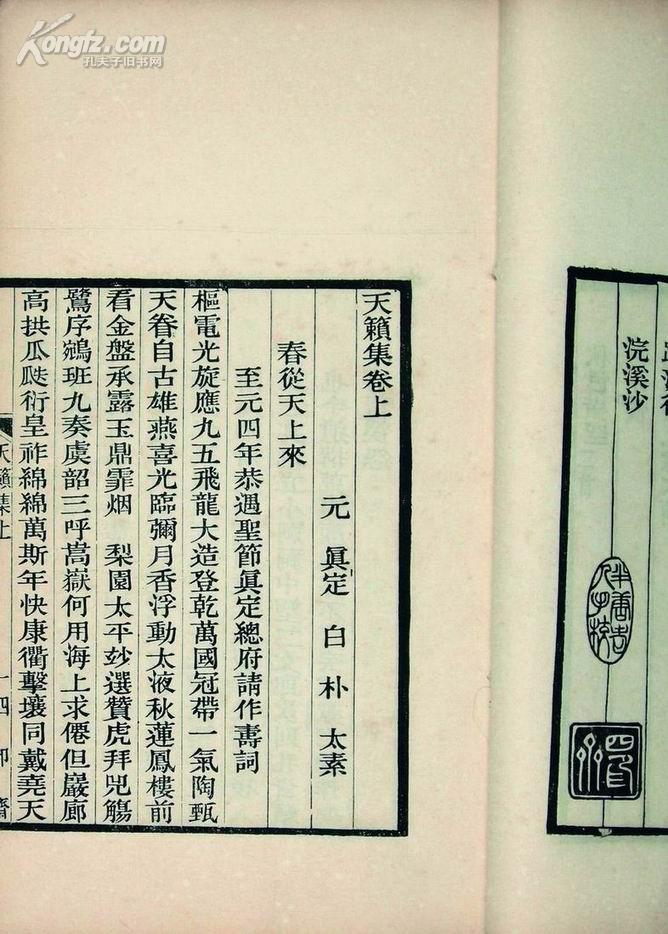 Kongfz.com
孔夫子旧书网
浣溪沙
天籟集卷上
元 眞定 白 朴 太素
春從天上來
至元四年恭遇聖節眞定總府請作壽詞
樞電光旋應九五飛龍大造登乾萬國冠帶一氣陶甄
天眷自古雄燕喜光臨彌月香浮動太液秋蓮鳳樓前
看金盤承露玉鼎霏烟 梨園太平妙選贊虎拜兕觴
鷺序鵷班九奏虞韶三呼嵩嶽何用海上求僊但巖廊
高拱瓜瓞衍皇祚綿綿萬斯年快康衢擊壤同戴堯天
天籟集上
一四印齋